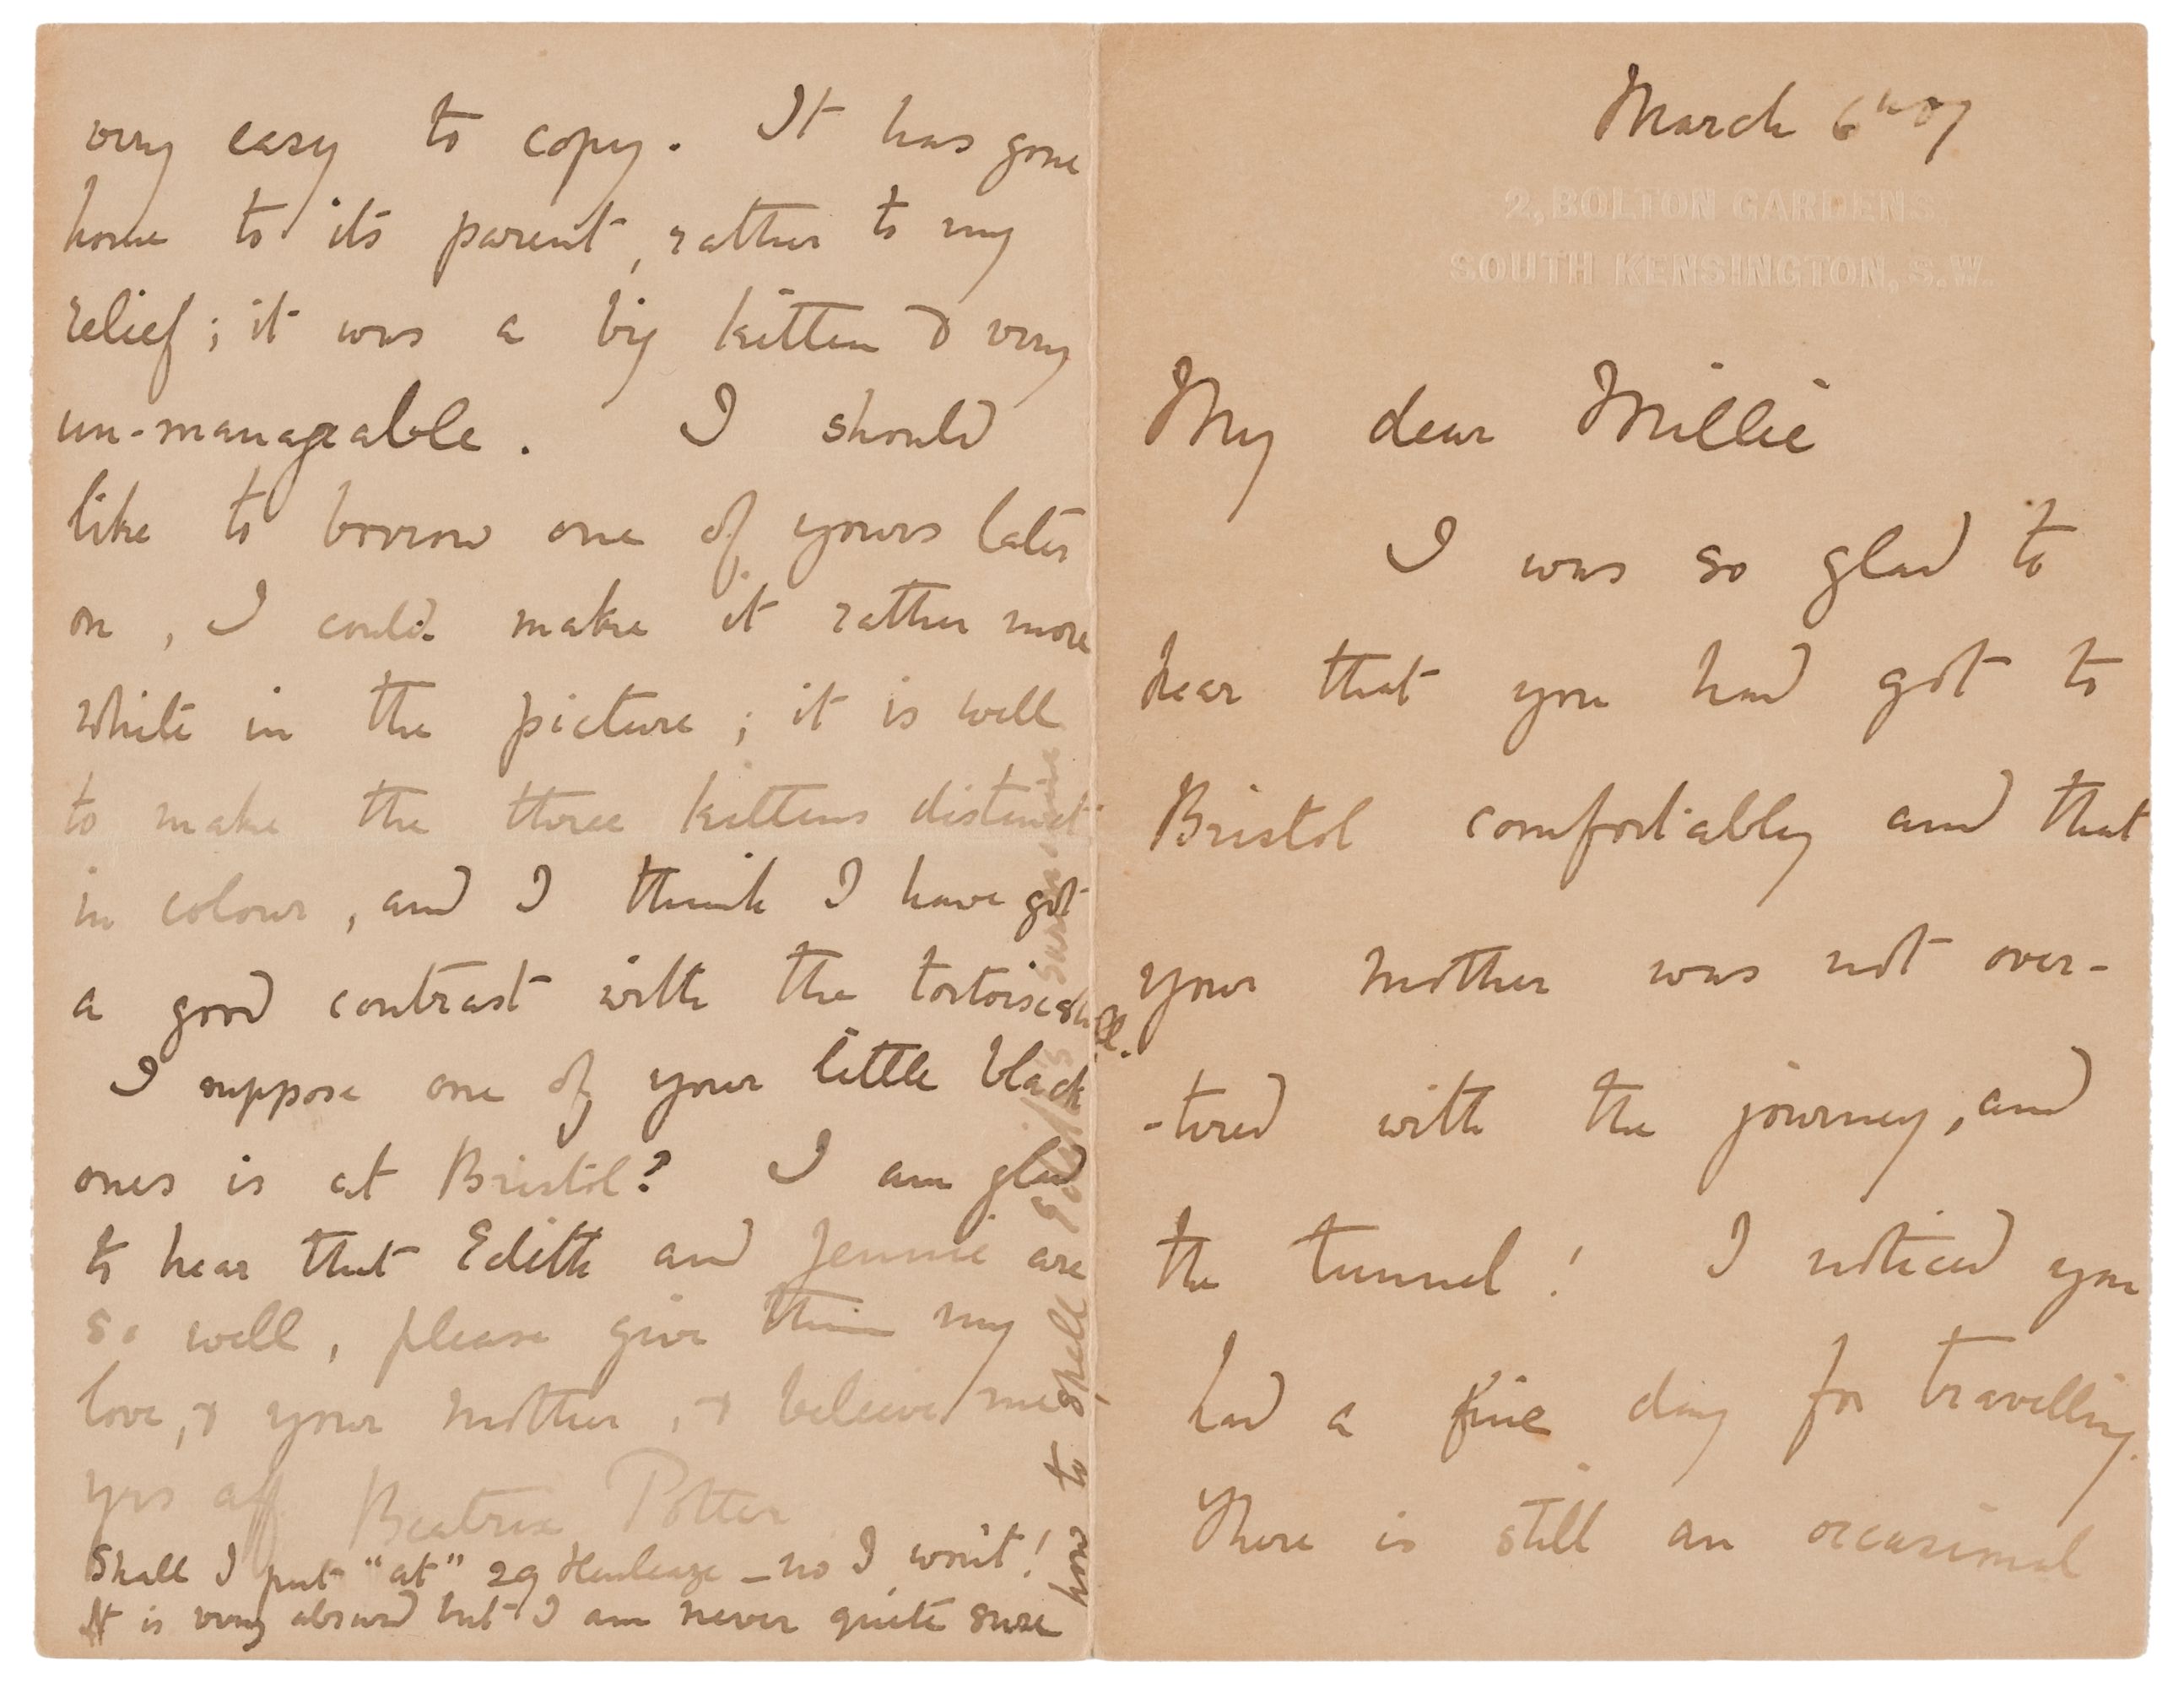 March 6th 07
2, BOLTON GARDENS
SOUTH KENSINGTON, S.W.
My dear Millie
I was so glad to
hear that you had got to
Bristol comfortably and that
your mother was not over-
-tired with the journey, and
the tunnel! I noticed you
had a fine day for travelling.
There is still an occasional
very easy to copy. It has gone
home to its parent, rather to my
relief; it was a big kitten & very
un-manageable. I should
like to borrow one of yours later
on, I could make it rather more
white in the picture; it is well
to make the three kittens distinct
in colour, and I think I have got
a good contrast with the tortoiseshell.
I suppose one of your little black
ones is at Bristol? I am glad
to hear that Edith and Jennie are
so well, please give them my
love, & your mother, & believe me
yrs aff Beatrix Potter
Shall I put "at" 29 Henleaze - no I won't!
It is very absurd but I am never quite sure
how to spell Edith's surname